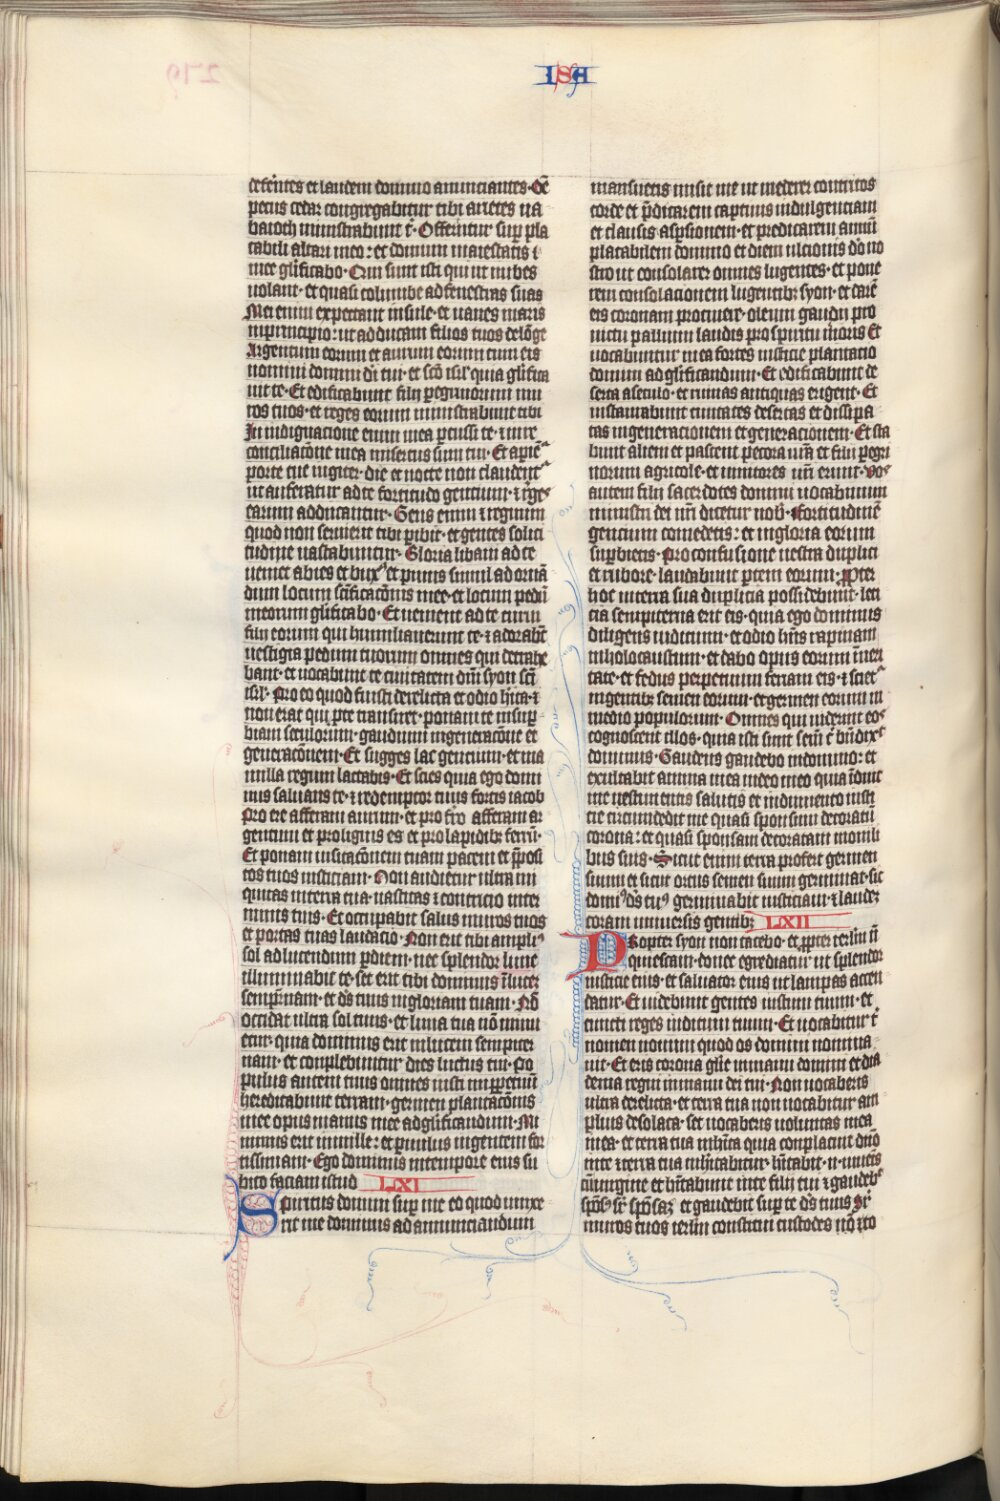 ISA
deferentes et laudem domino annunciantes. Oē
pecus cedar congregabitur tibi arietes na
baioth ministrabunt t̄. Offerentur sup̱ pla
cabili altari meo: et domum maiestatis
mee gl̄ificabo. Qui sunt isti qui ut nubes
uolant. et quasi columbe ad fenestras suas
Me enim expectant insule. et naues maris
in principio: ut adducam filios tuos de lōge
Argentum eorum et aurum eorum cum eis
nomini domini dī tui. et sc̄o isrl̄ quia gl̄ifica
uit te. Et edificabunt filij ꝑegrinorum mu
ros tuos. et reges eorum ministrabunt tibi
In indignacione enim mea ꝑcussi te. ⁊ in re
conciliac̄one mea misertus sum tui. Et aꝑiēt
porte tue iugiter. die et nocte non claudent̄
ut afferatur ad te fortitudo gencium. ⁊ reges
earum adducantur. Gens enim ⁊ regnum
quod non seruierit tibi ꝑibit. et gentes solitu
tudine uastabuntur. Gloria libani ad te
ueniet abies et buxꝰ et pinus simul ad ornā
dum locum sc̄ificac̄onis mee. et locum pedū
meorum gl̄ificabo. Et uenient ad te curui
filij eorum qui humiliauerunt te. ⁊ adorabūt
uestigia pedum tuorum omnes qui detrahe
bant. et uocabunt te ciuitatem dn̄i syon sc̄i
isrl̄. Pro eo quod fuisti derelicta et odio hita. ⁊
non erat qui ꝑ te transiret. ponam te in suꝑ
biam seculorum. gaudium in generac̄one et
generac̄onem. Et sugges lac gencium. et ma
milla regum lactabis. Et scies quia ego domi
nus saluans te. ⁊ redemptor tuus fortis iacob
Pro ere afferam aurum. et pro fr̄o afferam ar
gentum et pro lignis es et pro lapidibꝫ ferrū.
Et ponam uisitac̄onem tuam pacem et p̄posi
tos tuos iusticiam. Non audietur ultra ini
quitas in terra tua. uastitas ⁊ contricio in ter
minis tuis. Et occupabit salus muros tuos
et portas tuas laudacio. Non erit tibi ampliꝰ
sol ad lucendum ꝑ diem. nec splendor lune
illuminabit te. set erit tibi dominus ī lucem
semꝑnam. et dꝰs tuus in gloriam tuam. Nō
occidat ultra sol tuus. et luna tua nō minu
etur. quia dominus erit in lucem sempiter
nam. et complebuntur dies luctus tui. Po
pulus autem tuus omnes iusti in ꝑpetuū
hereditabunt terram. germen plantac̄onis
mee opus manus mee ad gl̄ificandum. Mi
nimus erit in mille: et ꝑuulus in gentem for
tissimam. Ego dominus in tempore eius su
bito faciam istud LXI
Spiritus domini suꝑ me eo quod unxe
rit me dominus ad annunciandum
mansuetis misit me ut mederer contritos
corde et p̄dicarem captiuis indulgenciam
et clausis aꝑsionem. et predicarem annū
placabilem domino et diem ulcionis dō no
stro ut consolarer omnes lugentes. et pone
rem consolacionem lugentibꝫ syon. et darē
eis coronam pro cinere. oleum gaudii pro
luctu pallium laudis pro spiritu meroris Et
uocabuntur in ea fortes iusticie plantacio
domini ad gl̄ificandum. Et edificabunt de
serta a seculo. et ruinas antiquas erigent. Et
instaurabunt ciuitates desertas et dissipa
tas in generacionem et generacionem. Et sta
bunt alieni et pascent pecora ur̄a et filii ꝑegri
norum agricole. et uinitores ur̄i erunt. vos
autem filij sacerdotes domini uocabimini
ministri dei nr̄i dicetur uob̄. Fortitudinē
gencium comedetis: et in gloria eorum
suꝑbietis. Pro confusione uestra duplici
et rubore. laudabunt ꝑtem eorum. ꝓpter
hoc in terra sua duplicia possidebunt. leti
cia sempiterna erit eis. quia ego dominus
diligens iudicium. et odio hn̄s rapinam
in holocaustum. et dabo opus eorum ī ueri
tate. et fedus perpetuum feriam eis. ⁊ sciet̄
in gentibꝫ semen eorum. et germen eorum in
medio populorum. Omnes qui uiderint eos
cognoscent illos. quia isti sunt sem̄ ē bn̄dixꝰ
dominus. Gaudens gaudebo in domino: et
exultabit anima mea in deo meo quia īduit
me uestimentis salutis et indumento iusti
cie circumdedit me quasi sponsum decoratū
corona: et quasi sponsam decoratam monili
bus suis. Sicut enim terra profert germen
suum et sicut ortus semen suum germinat. sic
domiꝰ dꝰs tuꝰ germinabit iusticiam ⁊ laudeꝫ
coram uniuersis gentibꝫ LXII
Propter syon non tacebo. et ꝓpter ierl̄m n̄
quiescam. donec egrediatur ut splendor
iusticie eius. et saluator eius ut lampas accen
datur. Et uidebunt gentes iustum tuum. et
cuncti reges inclitum tuum. Et uocabitur t̄
nomen nouum quod os domini nomina
uit. Et eris corona gl̄ie in manu domini et dia
dema regni in manu dei tui. Non uocaberis
ultra derelicta. et terra tua non uocabitur am
plius desolata. set uocaberis uoluntas mea
in ea. et terra tua inhīta quia complacuit dn̄o
in te ⁊ terra tua inhītabitur. hītabit. n. iuuenis
cū uirgine et hītabunt in te filij tui ⁊ gaudebit
spōs̄ sr̄ spōsaꝫ et gaudebit suꝑ te dꝰs tuus Sr̄
muros tuos ierl̄m constitui custodes nō ⁊co